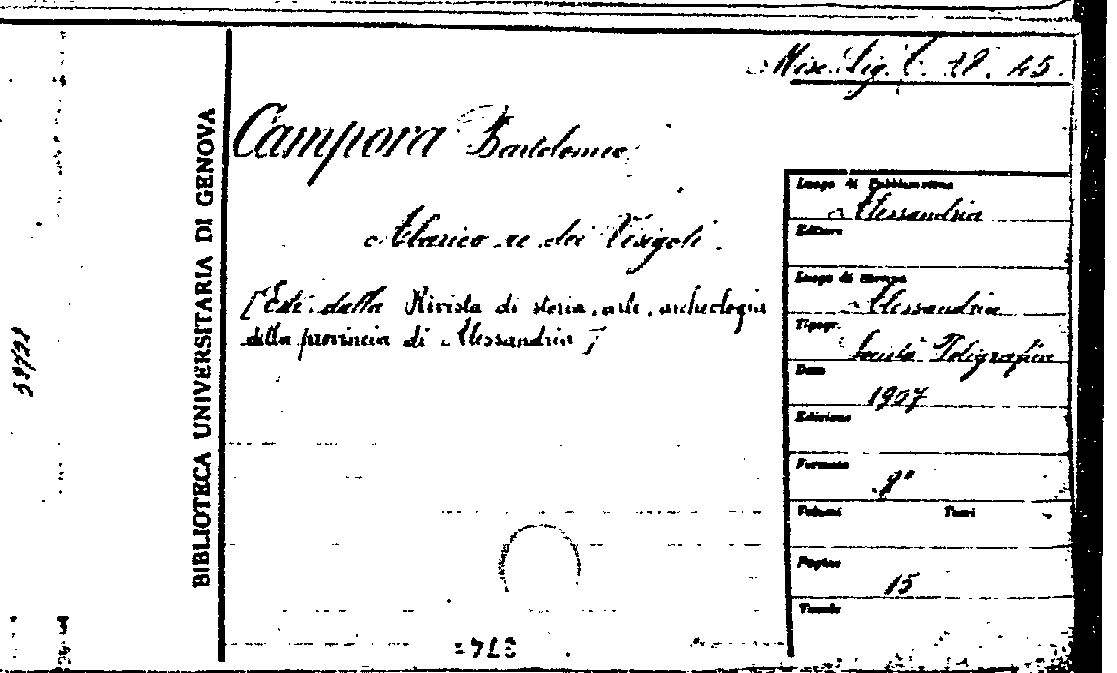 Misc. Lig. C. 28. 45.
Campora Bartolomeo
Alarico re dei Visigoti.
[Estr. dalla Rivista di storia, arte, archeologia
della provincia di Alessandria]
BIBLIOTECA UNIVERSITARIA DI GENOVA
Luogo di Pubblicazione
Alessandria
Editore
Luogo di stampa
Alessandria
Tipogr.
Società Poligrafica
Data
1907
Edizione
Formato
8°
Volumi Tomi
Pagine
15
Tavole